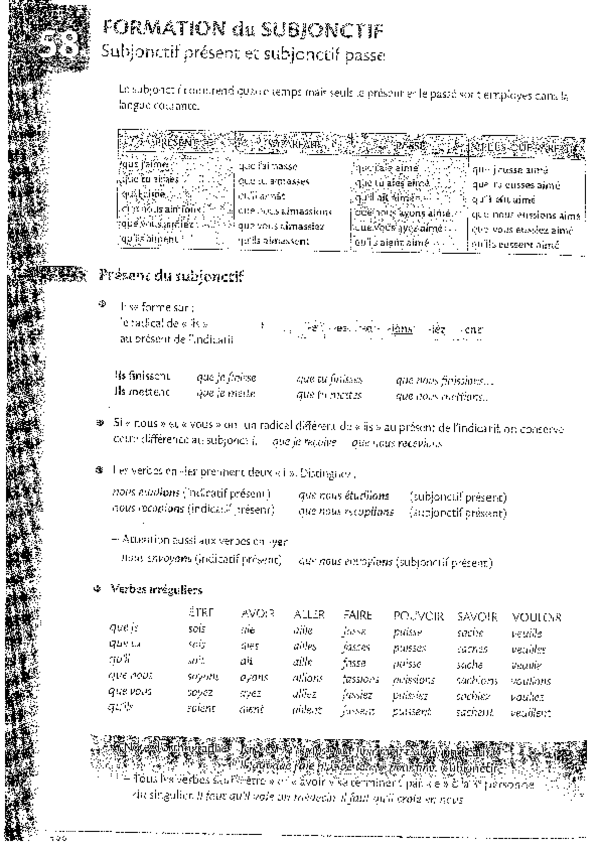 58
FORMATION du SUBJONCTIF
Subjonctif présent et subjonctif passé
Le subjonctif comprend quatre temps mais seuls le présent et le passé sont employés dans la
langue courante.
PRÉSENT IMPARFAIT PASSÉ PLUS-QUE-PARFAIT
que j'aime que j'aimasse que j'aie aimé que j'eusse aimé
que tu aimes que tu aimasses que tu aies aimé que tu eusses aimé
qu'il aime qu'il aimât qu'il ait aimé qu'il eût aimé
que nous aimions que nous aimassions que nous ayons aimé que nous eussions aimé
que vous aimiez que vous aimassiez que vous ayez aimé que vous eussiez aimé
qu'ils aiment qu'ils aimassent qu'ils aient aimé qu'ils eussent aimé
Présent du subjonctif
Il se forme sur :
le radical de « ils » -es -ions -iez -ent
au présent de l'indicatif
Ils finissent que je finisse que tu finisses que nous finissions...
Ils mettent que je mette que tu mettes que nous mettions...
Si « nous » et « vous » ont un radical différent de « ils » au présent de l'indicatif, on conserve
cette différence au subjonctif. que je reçoive que nous recevions
Les verbes en -ier prennent deux « i ». Distinguez :
nous étudions (indicatif présent) que nous étudiions (subjonctif présent)
nous recopions (indicatif présent) que nous recopiions (subjonctif présent)
– Attention aussi aux verbes en -yer
nous envoyons (indicatif présent) que nous envoyions (subjonctif présent)
Verbes irréguliers
ÊTRE AVOIR ALLER FAIRE POUVOIR SAVOIR VOULOIR
que je sois aie aille fasse puisse sache veuille
que tu sois aies ailles fasses puisses saches veuilles
qu'il soit ait aille fasse puisse sache veuille
que nous soyons ayons allions fassions puissions sachions voulions
que vous soyez ayez alliez fassiez puissiez sachiez vouliez
qu'ils soient aient aillent fassent puissent sachent veuillent
– Tous les verbes sauf « être » et « avoir » se terminent par « e » à la 3e personne
du singulier. Il faut qu'il voie un médecin. Il faut qu'il croie en nous.